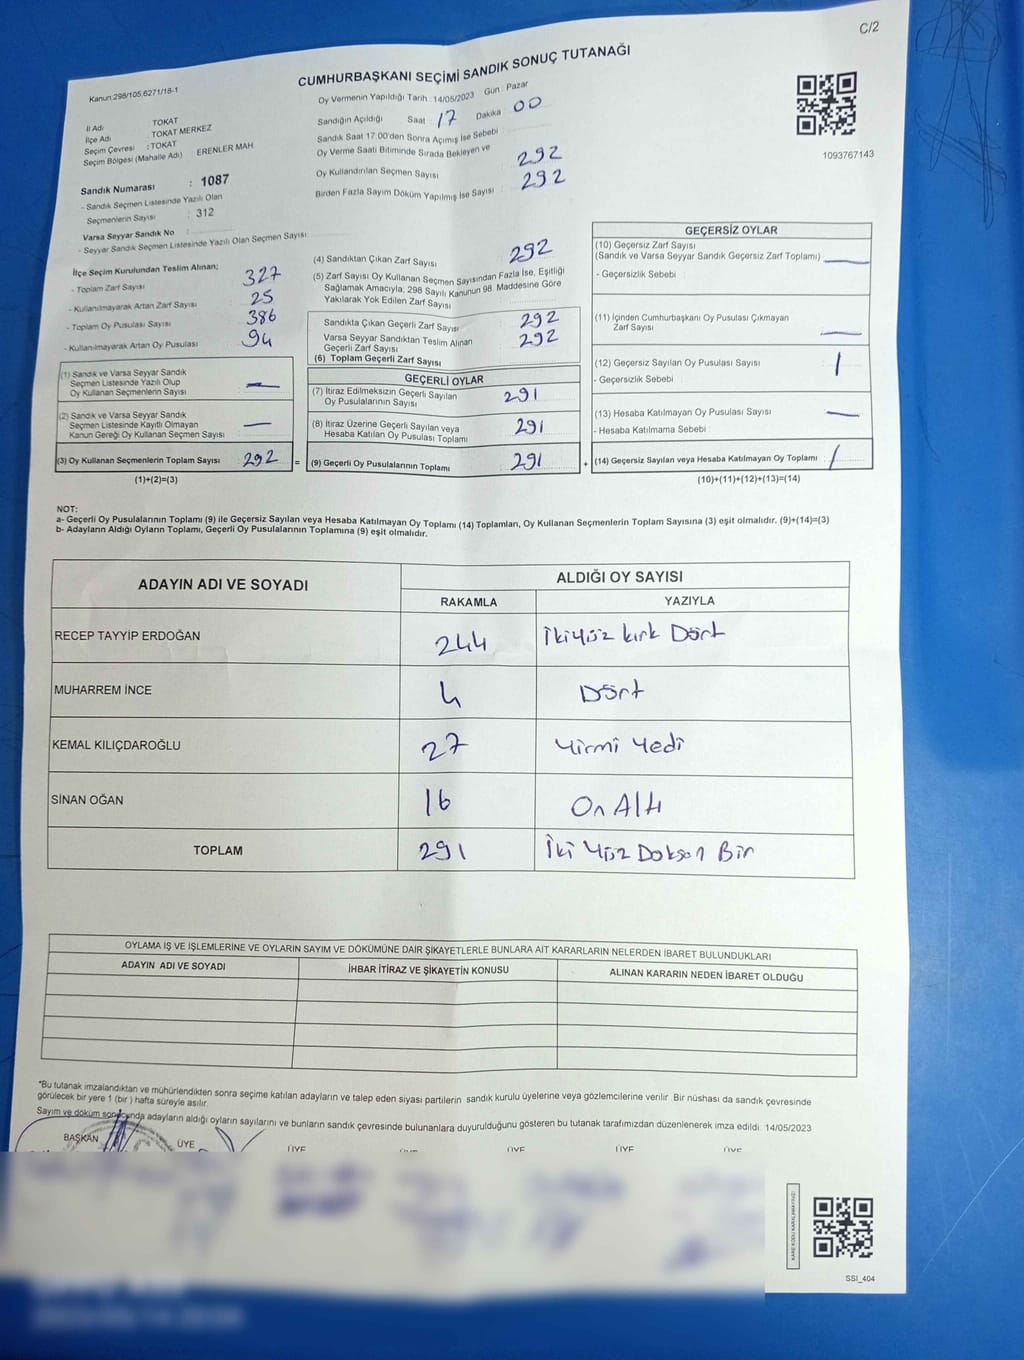 C/2
CUMHURBAŞKANI SEÇİMİ SANDIK SONUÇ TUTANAĞI
Kanun:298/105,6271/18-1
Oy Vermenin Yapıldığı Tarih : 14/05/2023 Gün : Pazar
İl Adı : TOKAT
İlçe Adı : TOKAT MERKEZ
Seçim Çevresi : TOKAT
Seçim Bölgesi (Mahalle Adı) ERENLER MAH
Sandığın Açıldığı Saat : 17 Dakika : 00
Sandık Saat 17:00'den Sonra Açılmış İse Sebebi :
Oy Verme Saati Bitiminde Sırada Bekleyen ve
Oy Kullandırılan Seçmen Sayısı 292
Birden Fazla Sayım Döküm Yapılmış İse Sayısı : 292
1093767143
Sandık Numarası : 1087
- Sandık Seçmen Listesinde Yazılı Olan
Seçmenlerin Sayısı : 312
Varsa Seyyar Sandık No :
- Seyyar Sandık Seçmen Listesinde Yazılı Olan Seçmen Sayısı:
İlçe Seçim Kurulundan Teslim Alınan;
- Toplam Zarf Sayısı 327
- Kullanılmayarak Artan Zarf Sayısı 25
- Toplam Oy Pusulası Sayısı 386
- Kullanılmayarak Artan Oy Pusulası 94
(1) Sandık ve Varsa Seyyar Sandık
Seçmen Listesinde Yazılı Olup
Oy Kullanan Seçmenlerin Sayısı —
(2) Sandık ve Varsa Seyyar Sandık
Seçmen Listesinde Kayıtlı Olmayan
Kanun Gereği Oy Kullanan Seçmen Sayısı —
(3) Oy Kullanan Seçmenlerin Toplam Sayısı 292
(1)+(2)=(3)
(4) Sandıktan Çıkan Zarf Sayısı 292
(5) Zarf Sayısı Oy Kullanan Seçmen Sayısından Fazla İse, Eşitliği
Sağlamak Amacıyla; 298 Sayılı Kanunun 98. Maddesine Göre
Yakılarak Yok Edilen Zarf Sayısı
Sandıkta Çıkan Geçerli Zarf Sayısı 292
Varsa Seyyar Sandıktan Teslim Alınan
Geçerli Zarf Sayısı 292
(6) Toplam Geçerli Zarf Sayısı
GEÇERLİ OYLAR
(7) İtiraz Edilmeksizin Geçerli Sayılan
Oy Pusulalarının Sayısı 291
(8) İtiraz Üzerine Geçerli Sayılan veya
Hesaba Katılan Oy Pusulası Toplamı 291
= (9) Geçerli Oy Pusulalarının Toplamı 291 +
GEÇERSİZ OYLAR
(10) Geçersiz Zarf Sayısı
(Sandık ve Varsa Seyyar Sandık Geçersiz Zarf Toplamı) —
- Geçersizlik Sebebi :
(11) İçinden Cumhurbaşkanı Oy Pusulası Çıkmayan
Zarf Sayısı —
(12) Geçersiz Sayılan Oy Pusulası Sayısı 1
- Geçersizlik Sebebi :
(13) Hesaba Katılmayan Oy Pusulası Sayısı —
- Hesaba Katılmama Sebebi :
(14) Geçersiz Sayılan veya Hesaba Katılmayan Oy Toplamı 1
(10)+(11)+(12)+(13)=(14)
NOT:
a- Geçerli Oy Pusulalarının Toplamı (9) ile Geçersiz Sayılan veya Hesaba Katılmayan Oy Toplamı (14) Toplamları, Oy Kullanan Seçmenlerin Toplam Sayısına (3) eşit olmalıdır. (9)+(14)=(3)
b- Adayların Aldığı Oyların Toplamı, Geçerli Oy Pusulalarının Toplamına (9) eşit olmalıdır.
ADAYIN ADI VE SOYADI ALDIĞI OY SAYISI
RAKAMLA YAZIYLA
RECEP TAYYİP ERDOĞAN 244 İkiyüz kırk Dört
MUHARREM İNCE 4 Dört
KEMAL KILIÇDAROĞLU 27 Yirmi Yedi
SİNAN OĞAN 16 On Altı
TOPLAM 291 İki Yüz Doksan Bir
OYLAMA İŞ VE İŞLEMLERİNE VE OYLARIN SAYIM VE DÖKÜMÜNE DAİR ŞİKAYETLERLE BUNLARA AİT KARARLARIN NELERDEN İBARET BULUNDUKLARI
ADAYIN ADI VE SOYADI İHBAR İTİRAZ VE ŞİKAYETİN KONUSU ALINAN KARARIN NEDEN İBARET OLDUĞU
"Bu tutanak imzalandıktan ve mühürlendikten sonra seçime katılan adayların ve talep eden siyasi partilerin sandık kurulu üyelerine veya gözlemcilerine verilir. Bir nüshası da sandık çevresinde
görülecek bir yere 1 (bir ) hafta süreyle asılır.
Sayım ve döküm sonucunda adayların aldığı oyların sayılarını ve bunların sandık çevresinde bulunanlara duyurulduğunu gösteren bu tutanak tarafımızdan düzenlenerek imza edildi. 14/05/2023
BAŞKAN ÜYE ÜYE ÜYE ÜYE ÜYE ÜYE
KARE KODU KARALAMAYINIZ!
SSI_404